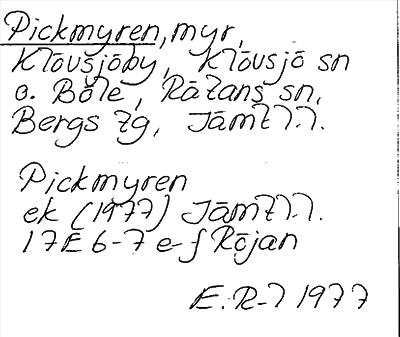 Pickmyren, myr,
Klövsjöby, Klövsjö sn
o. Böle, Rätans sn,
Bergs tg, Jämtl.
Pickmyren
ek (1977) Jämtl.
17E 6-7 e-f Röjan
E.R-l 1977